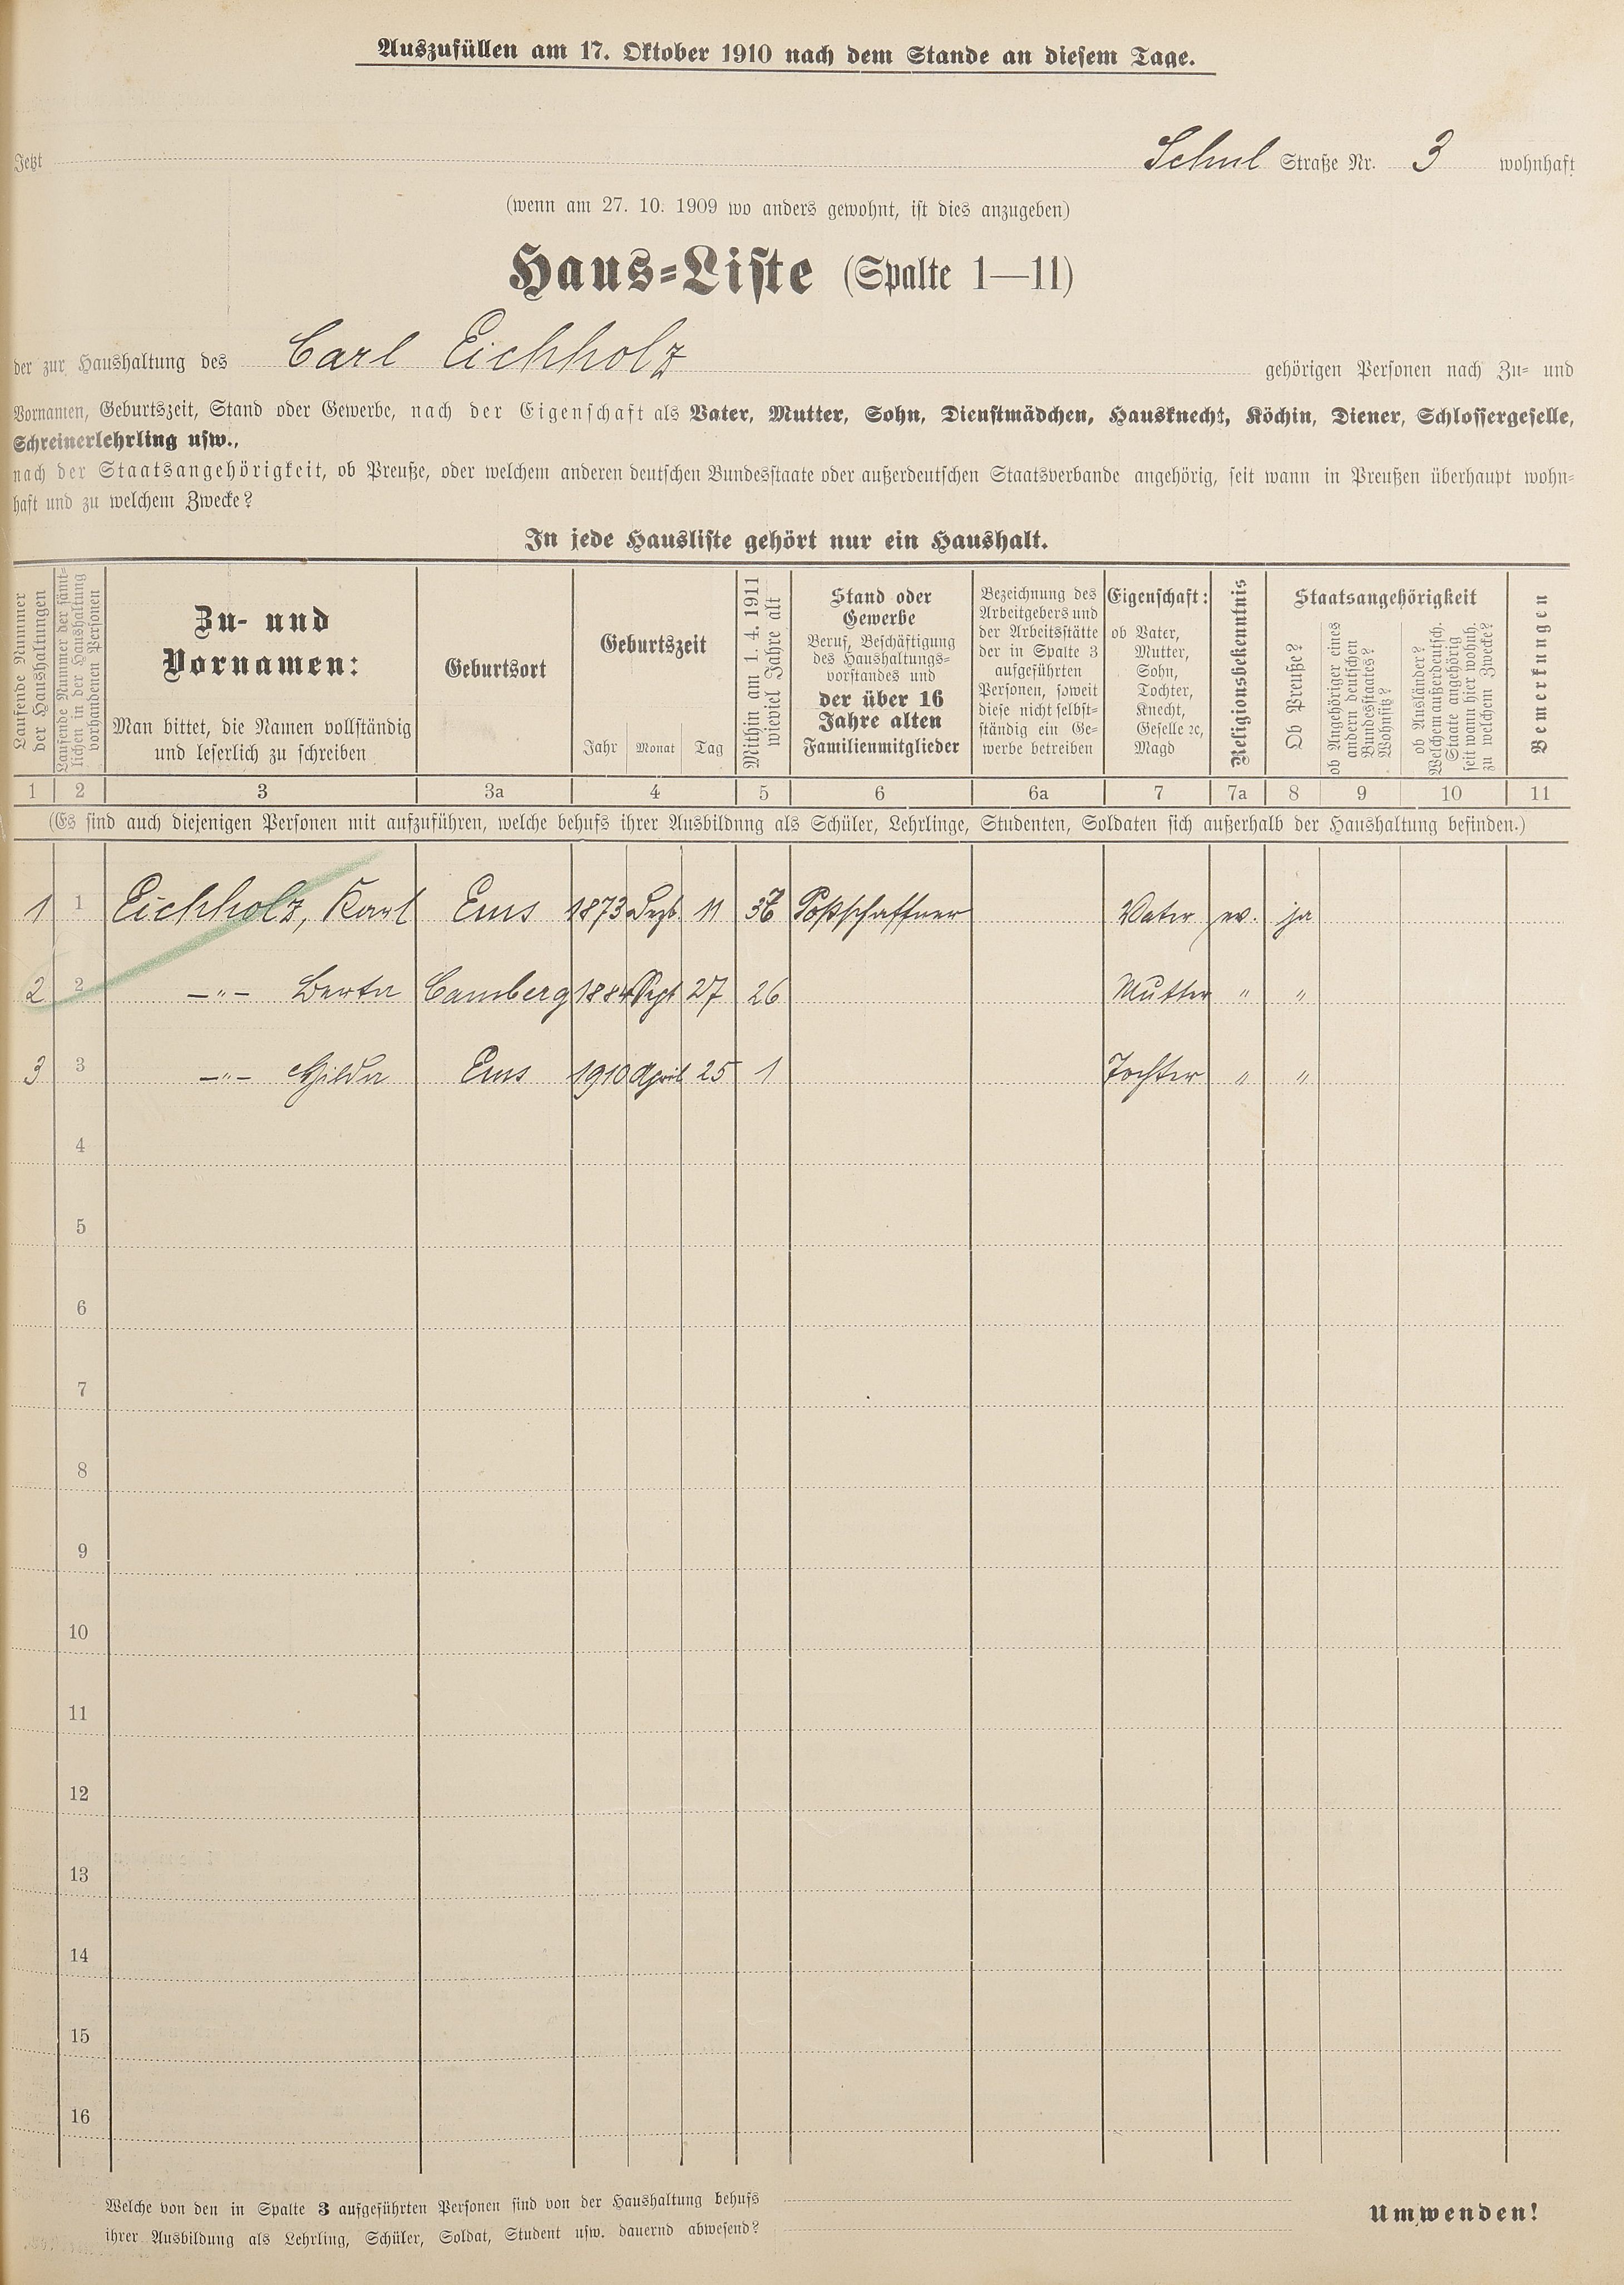 Auszufüllen am 17. Oktober 1910 nach dem Stande an diesem Tage.
Jetzt Schul Straße Nr. 3 wohnhaft
(wenn am 27. 10. 1909 wo anders gewohnt, ist dies anzugeben)
Haus-Liste (Spalte 1—11)
der zur Haushaltung des Carl Eichholz gehörigen Personen nach Zu- und
Vornamen, Geburtszeit, Stand oder Gewerbe, nach der Eigenschaft als Vater, Mutter, Sohn, Dienstmädchen, Hausknecht, Köchin, Diener, Schlossergeselle,
Schreinerlehrling usw.,
nach der Staatsangehörigkeit, ob Preuße, oder welchem anderen deutschen Bundesstaate oder außerdeutschen Staatsverbande angehörig, seit wann in Preußen überhaupt wohn-
haft und zu welchem Zwecke?
In jede Hausliste gehört nur ein Haushalt.
Laufende Nummer
der Haushaltungen
Laufende Nummer der sämt-
lichen in der Haushaltung
vorhandenen Personen
Zu- und
Vornamen:
Man bittet, die Namen vollständig
und leserlich zu schreiben
Geburtsort
Geburtszeit
Jahr Monat Tag
Mithin am 1. 4. 1911
wieviel Jahre alt
Stand oder
Gewerbe
Beruf, Beschäftigung
des Haushaltungs-
vorstandes und
der über 16
Jahre alten
Familienmitglieder
Bezeichnung des
Arbeitgebers und
der Arbeitsstätte
der in Spalte 3
aufgeführten
Personen, soweit
diese nicht selbst-
ständig ein Ge-
werbe betreiben
Eigenschaft:
ob Vater,
Mutter,
Sohn,
Tochter,
Knecht,
Geselle ꝛc,
Magd
Religionsbekenntnis
Staatsangehörigkeit
Ob Preuße?
ob Angehöriger eines
andern deutschen
Bundesstaates?
Wohnsitz?
ob Ausländer?
Welchem außerdeutsch.
Staate angehörig
seit wann hier wohnh.
zu welchem Zwecke?
Bemerkungen
1 2 3 3a 4 5 6 6a 7 7a 8 9 10 11
(Es sind auch diejenigen Personen mit aufzuführen, welche behufs ihrer Ausbildung als Schüler, Lehrlinge, Studenten, Soldaten sich außerhalb der Haushaltung befinden.)
1 1 Eichholz, Karl Ems 1873 11 Postschaffner Vater ev. ja
2 2 —"— Berta Camberg 1884 Sept 27 26 Mutter " "
3 3 —"— Hilda Ems 1910 April 25 1 Tochter " "
4
5
6
7
8
9
10
11
12
13
14
15
16
Welche von den in Spalte 3 aufgeführten Personen sind von der Haushaltung behufs
ihrer Ausbildung als Lehrling, Schüler, Soldat, Student usw. dauernd abwesend?
Umwenden!